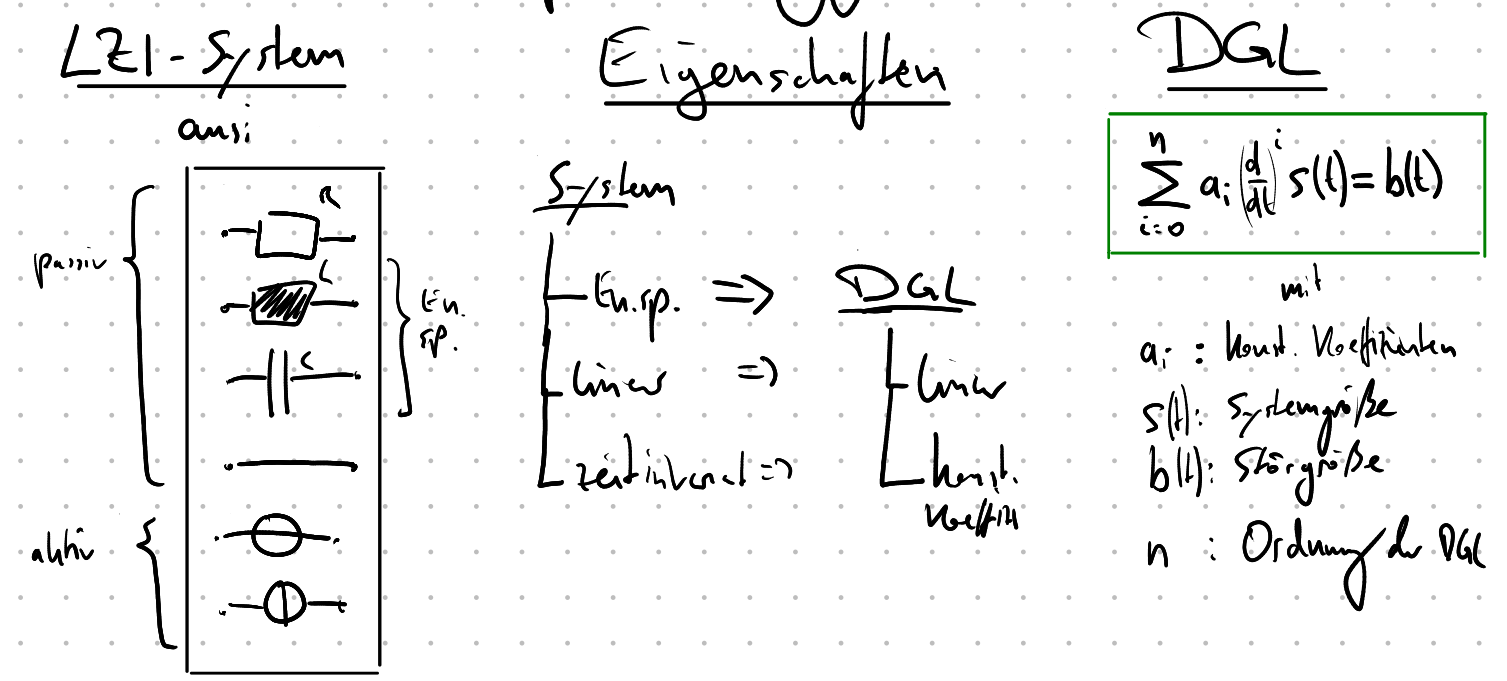 LZI-System
ansi
passiv
R
L
C
En.
sp.
aktiv
Eigenschaften
System
En.sp. => DGL
linear => linear
zeitinvariat => konst.
Koeffiz
DGL
n
∑ aᵢ (d/dt)ⁱ s(t) = b(t)
i=0
mit
aᵢ : konst. Koeffizienten
s(t): Systemgröße
b(t): Störgröße
n : Ordnung der DGL